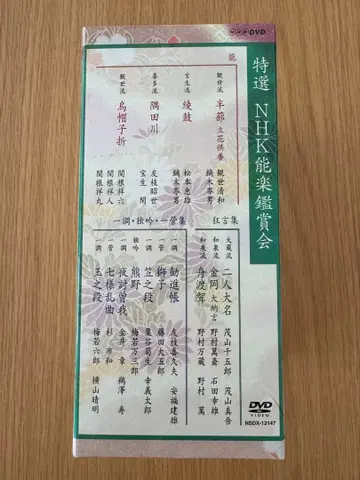 NHK DVD
特選 NHK能楽鑑賞会
能
観世流 半蔀 立花供養 観世清和 鏑木岑男
宝生流 綾鼓 松本恵雄 鏑木岑男
喜多流 隅田川 友枝昭世 宝生 閑
観世流 烏帽子折 関根祥六 関根祥人 関根祥丸
狂言集
大蔵流 二人大名 茂山千五郎 茂山真吾
和泉流 金岡 大納言 野村萬斎 石田幸雄
和泉流 舟渡聟 野村万蔵 野村 萬
一調・独吟・一管集
一調 勧進帳 友枝喜久夫 安福建雄
一管 獅子 藤田大五郎
一調 笠之段 粟谷菊生 幸義太郎
独吟 熊野 梅若万三郎
一調 夜討曽我 金井 章 鵜澤 寿
一管 七様乱曲 杉 市和
一調 玉之段 梅若六郎 横山晴明
DVD
VIDEO
NSDX-12147